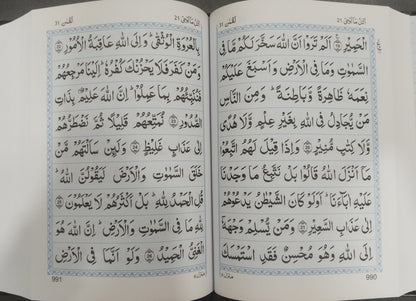 اتل ما اوحی 21 لقمٰن 31
الْحَمِيْرِ ۝ اَلَمْ تَرَوْا اَنَّ اللّٰهَ سَخَّرَ لَكُمْ مَّا فِى
السَّمٰوٰتِ وَمَا فِى الْاَرْضِ وَ اَسْبَغَ عَلَيْكُمْ
نِعَمَهٗ ظَاهِرَةً وَّبَاطِنَةً ؕ وَمِنَ النَّاسِ
مَنْ يُّجَادِلُ فِى اللّٰهِ بِغَيْرِ عِلْمٍ وَّلَا هُدًى
وَّلَا كِتٰبٍ مُّنِيْرٍ ۝ وَاِذَا قِيْلَ لَهُمُ اتَّبِعُوْا
مَاۤ اَنْزَلَ اللّٰهُ قَالُوْا بَلْ نَتَّبِعُ مَا وَجَدْنَا
عَلَيْهِ اٰبَآءَنَا ؕ اَوَلَوْ كَانَ الشَّيْطٰنُ يَدْعُوْهُمْ
اِلٰى عَذَابِ السَّعِيْرِ ۝ وَمَنْ يُّسْلِمْ وَجْهَهٗۤ
اِلَى اللّٰهِ وَهُوَ مُحْسِنٌ فَقَدِ اسْتَمْسَكَ
990
اتل ما اوحی 21 لقمٰن 31
بِالْعُرْوَةِ الْوُثْقٰى ؕ وَاِلَى اللّٰهِ عَاقِبَةُ الْاُمُوْرِ ۝
وَمَنْ كَفَرَ فَلَا يَحْزُنْكَ كُفْرُهٗ ؕ اِلَيْنَا مَرْجِعُهُمْ
فَنُنَبِّئُهُمْ بِمَا عَمِلُوْا ؕ اِنَّ اللّٰهَ عَلِيْمٌۢ بِذَاتِ
الصُّدُوْرِ ۝ نُمَتِّعُهُمْ قَلِيْلًا ثُمَّ نَضْطَرُّهُمْ
اِلٰى عَذَابٍ غَلِيْظٍ ۝ وَلَئِنْ سَاَلْتَهُمْ مَّنْ
خَلَقَ السَّمٰوٰتِ وَالْاَرْضَ لَيَقُوْلُنَّ اللّٰهُ ؕ
قُلِ الْحَمْدُ لِلّٰهِ ؕ بَلْ اَكْثَرُهُمْ لَا يَعْلَمُوْنَ ۝
لِلّٰهِ مَا فِى السَّمٰوٰتِ وَالْاَرْضِ ؕ اِنَّ اللّٰهَ هُوَ
الْغَنِىُّ الْحَمِيْدُ ۝ وَلَوْ اَنَّمَا فِى الْاَرْضِ
991